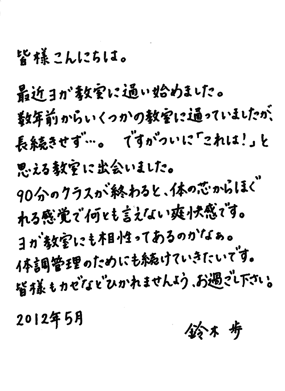 皆様こんにちは。
最近ヨガ教室に通い始めました。
数年前からいくつかの教室に通っていましたが、
長続きせず…。　ですがついに「これは!」と
思える教室に出会いました。
90分のクラスが終わると、体の芯からほぐ
れる感覚で何とも言えない爽快感です。
ヨガ教室にも相性ってあるのかなぁ。
体調管理のためにも続けていきたいです。
皆様もカゼなどひかれませんよう、お過ごし下さい。
2012年5月
鈴木 歩